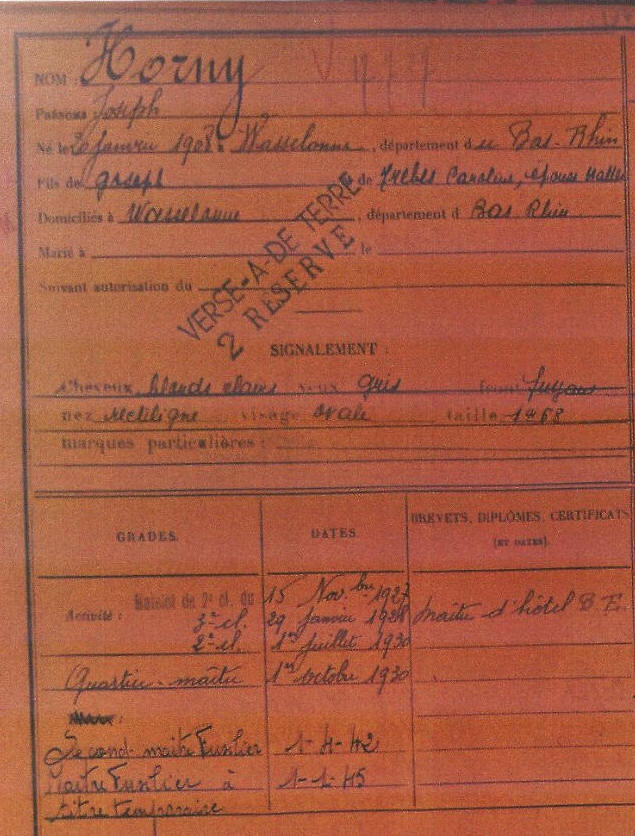 NOM : Horny
Prénoms : Joseph
Né le 20 janvier 1908 à Wasselonne, département du Bas-Rhin
Fils de Joseph de Caroline, épouse
Domiciliés à Wasselonne, département d Bas Rhin
Marié à le
Suivant autorisation du
VERSE-A-DE TERRE
2 RESERVE
SIGNALEMENT :
Cheveux blonds clairs yeux gris front fuyant
nez rectiligne visage ovale taille 1m68
marques particulières :
GRADES. DATES. BREVETS, DIPLÔMES, CERTIFICATS
(ET DATES).
Activité : Matelot de 2e cl. du 15 Novbre 1927
3e cl. 29 janvier 1928 maître d'hôtel B.E.
2e cl. 1er juillet 1930
Quartier-maître 1er octobre 1930
Second-maître Fusilier 1-4-42
Maître Fusilier à 1-1-45
titre temporaire